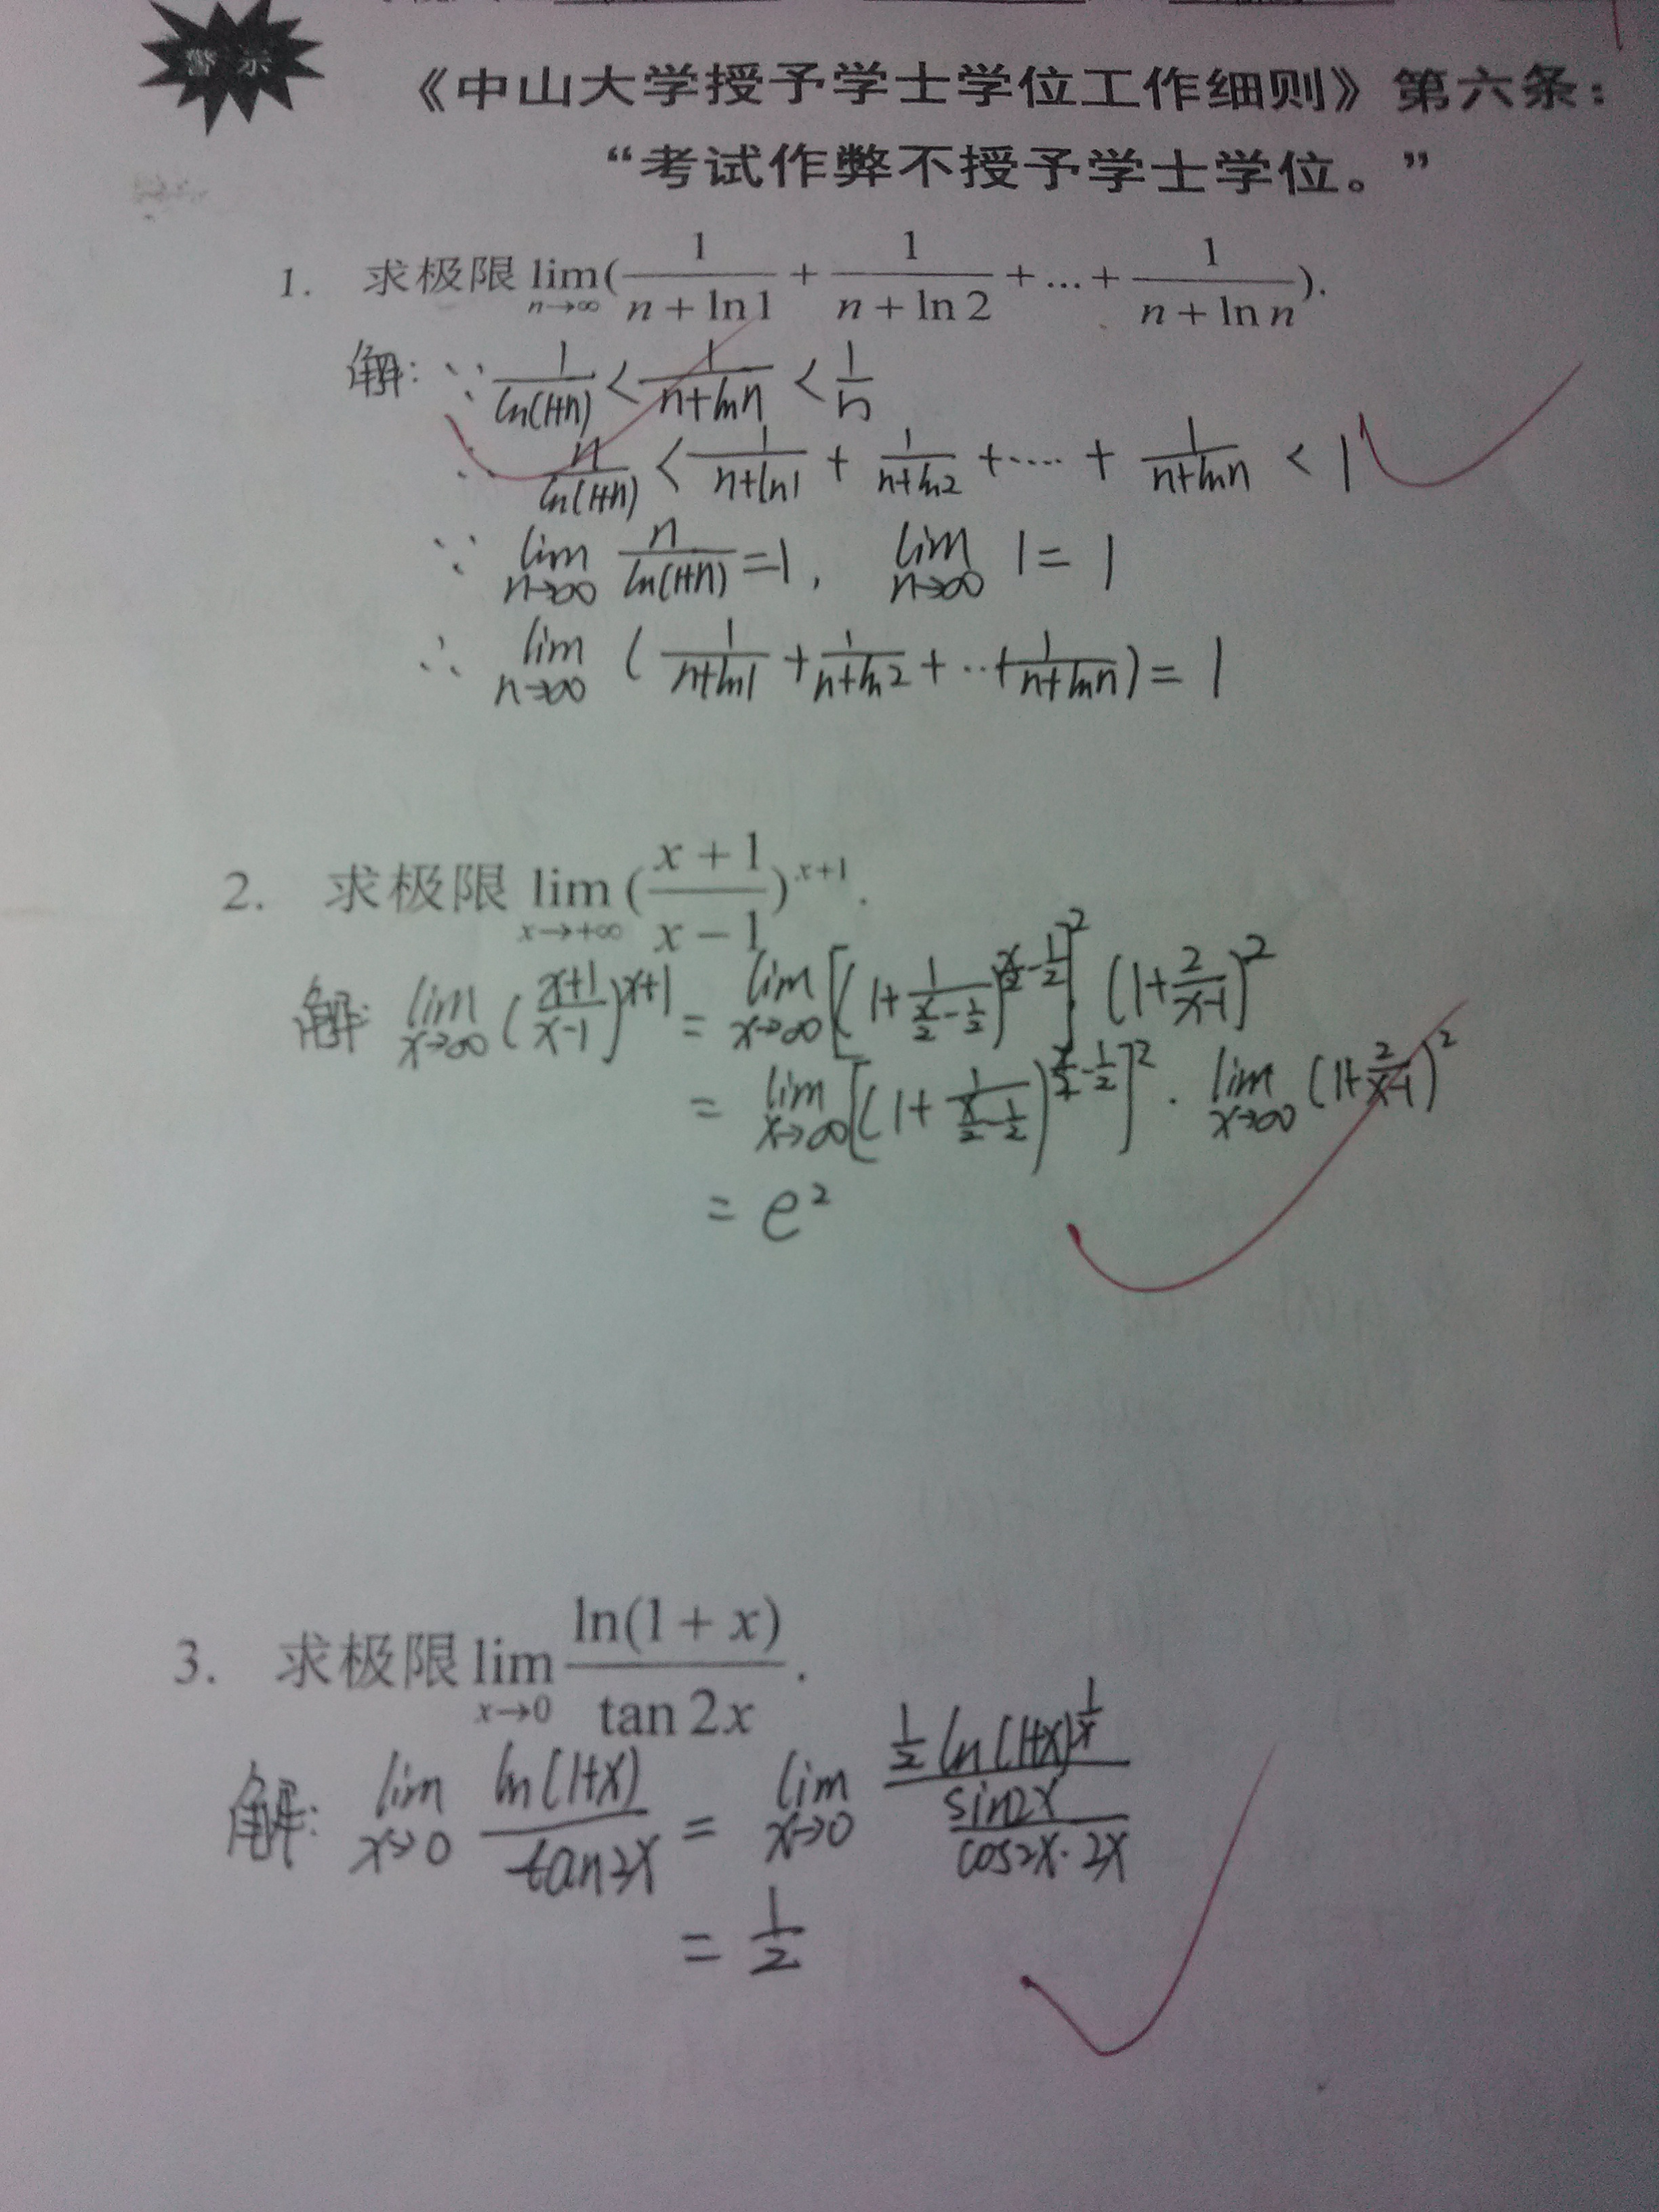 警示
《中山大学授予学士学位工作细则》第六条:
“考试作弊不授予学士学位。”
1. 求极限 lim_{n→∞}(1/(n + ln 1) + 1/(n + ln 2) + ... + 1/(n + ln n)).
解: ∵ 1/ln(1+n) < 1/(n+ln n) < 1/n
∴ n/ln(1+n) < 1/(n+ln1) + 1/(n+ln2) + ····· + 1/(n+ln n) < 1
∵ lim_{n→∞} n/ln(1+n) = 1, lim_{n→∞} 1 = 1
∴ lim_{n→∞} (1/(n+ln1) + 1/(n+ln2) + ··· + 1/(n+ln n)) = 1
2. 求极限 lim_{x→+∞} ((x + 1)/(x − 1))^{x+1}.
解: lim_{x→∞} ((x+1)/(x-1))^{x+1} = lim_{x→∞} [(1 + 1/(x/2 - 1/2))^{x/2 - 1/2}]^2 · (1 + 2/(x-1))^2
= lim_{x→∞} [(1 + 1/(x/2 - 1/2))^{x/2 - 1/2}]^2 · lim_{x→∞} (1 + 2/(x-1))^2
= e^2
3. 求极限 lim_{x→0} ln(1 + x)/tan 2x.
解: lim_{x→0} ln(1+x)/tan2x = lim_{x→0} (1/2 ln(1+x)^{1/x})/(sin2x/(cos2x · 2x))
= 1/2